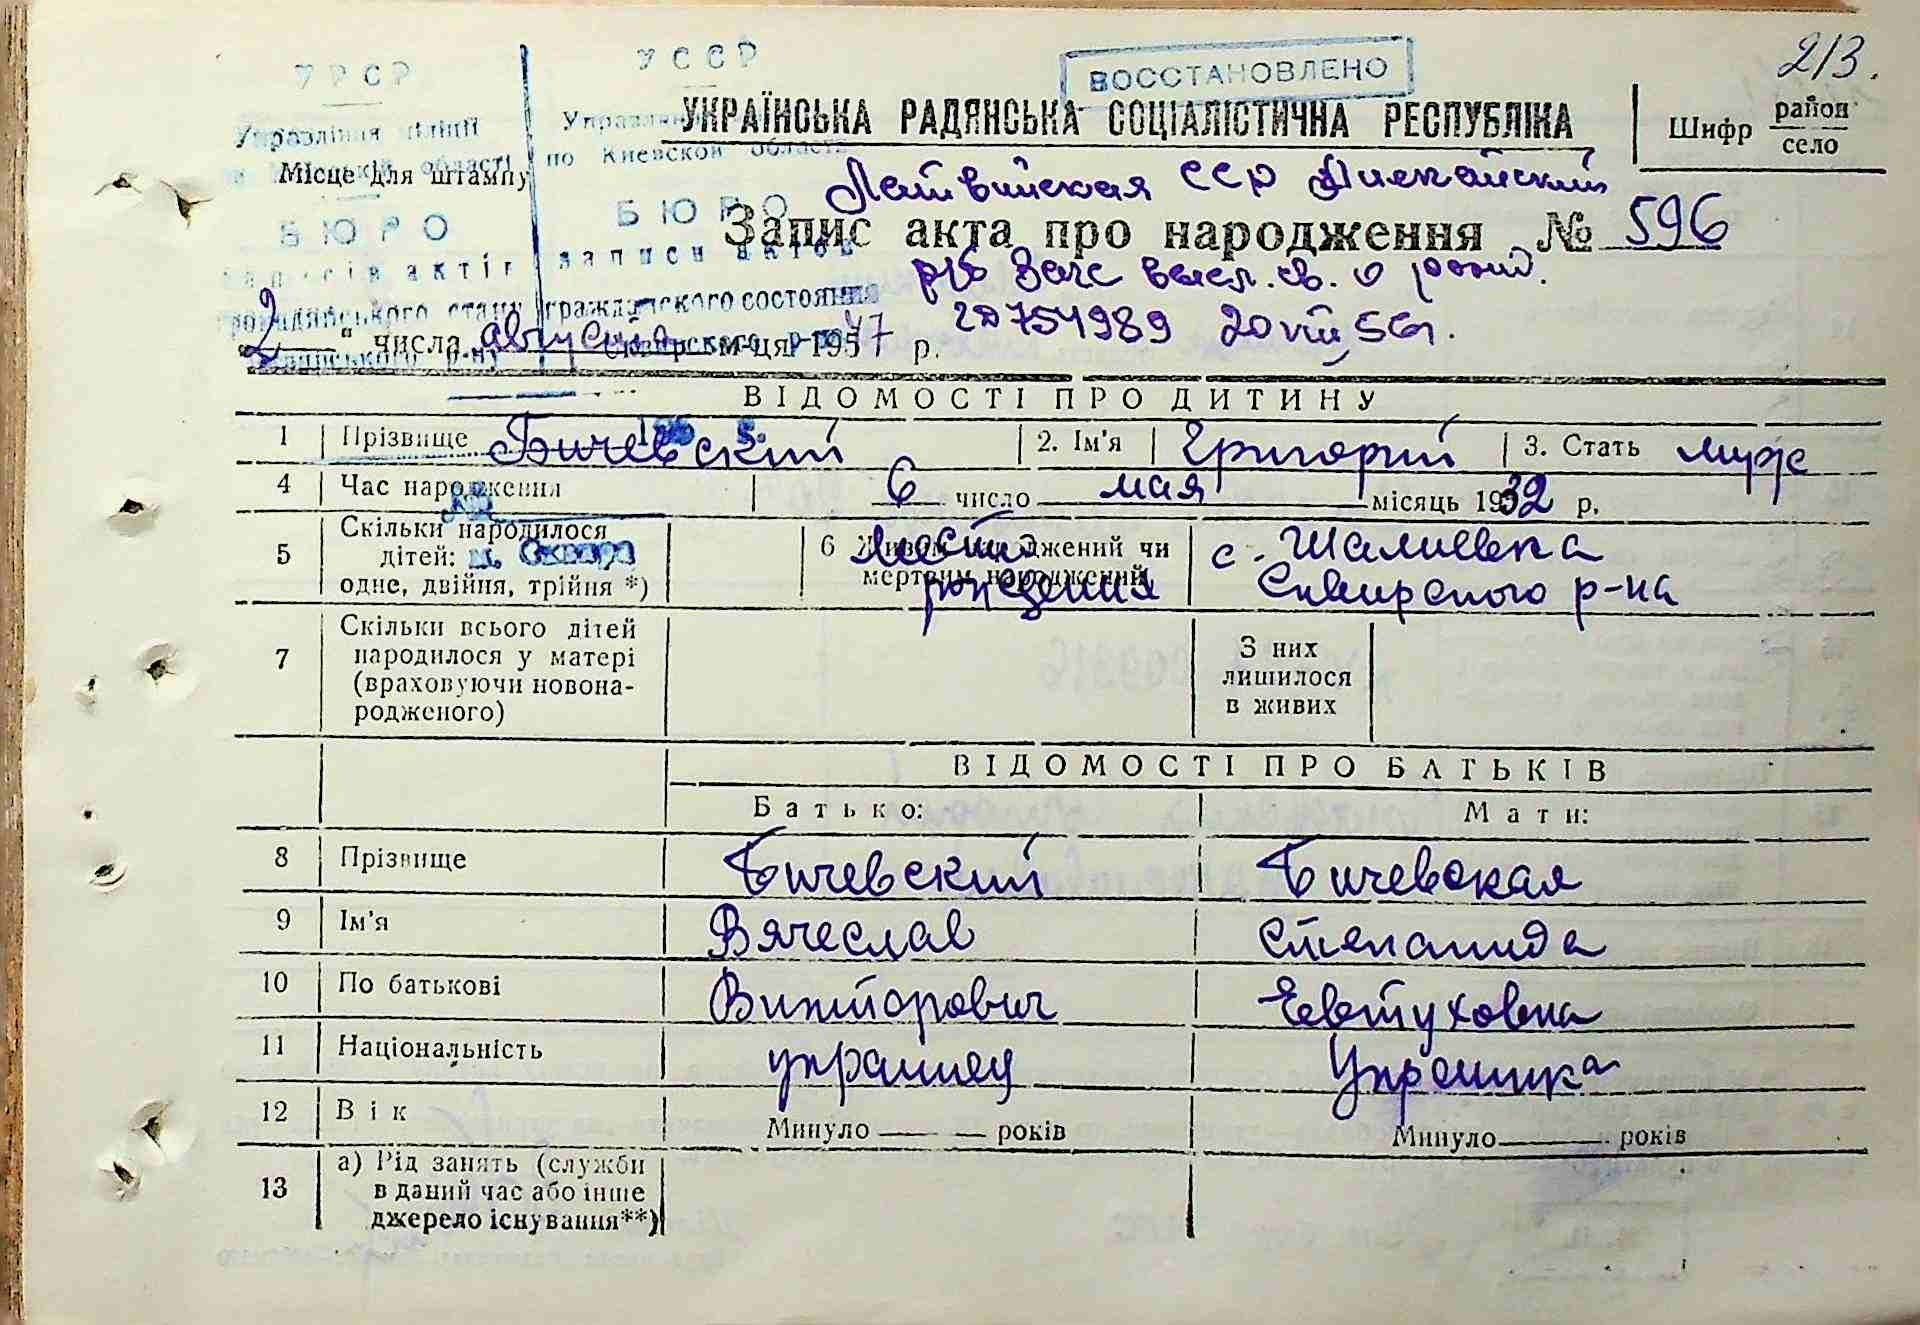 213.
УРСР
УССР
ВОССТАНОВЛЕНО
УКРАЇНСЬКА РАДЯНСЬКА СОЦІАЛІСТИЧНА РЕСПУБЛІКА
Шифр район село
Управління міліції
Управления
області
по Киевской области
Місце для штампу
Латвийская ССР
БЮРО
БЮРО
Запис акта про народження № 596
записів актів
записи актов
р/б Загс высл. св. о рожд.
громадянського стану
гражданского состояния
754989 20 VIII 56 г.
"2" числа августа м-ця 1957 р.
Сквирского р-на
ВІДОМОСТІ ПРО ДИТИНУ
1 Прізвище Бичевский 2. Ім'я Григорий 3. Стать муж
4 Час народження 6 число мая місяць 1932 р.
5 Скільки народилося дітей: одне, двійня, трійня *)
м. Сквира
6 Живим народжений чи мертвим народжений
Место рождения с. Шалиевка Сквирского р-на
7 Скільки всього дітей народилося у матері (враховуючи новонародженого)
З них лишилося в живих
ВІДОМОСТІ ПРО БАТЬКІВ
Батько: Мати:
8 Прізвище Бичевский Бичевская
9 Ім'я Вячеслав Степанида
10 По батькові Викторович Евтуховна
11 Національність украинец Украинка
12 Вік Минуло років Минуло років
13 а) Рід занять (служби в даний час або інше джерело існування**)